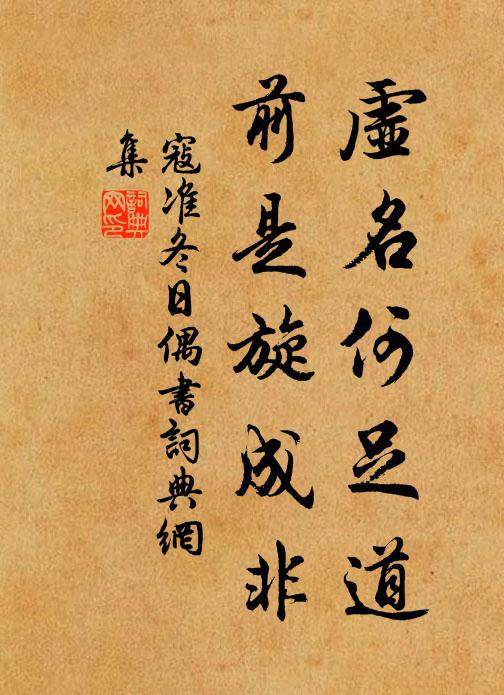 虛名何足道
前是旋成非
寇准冬日偶書詞典網
集
詞典
网印